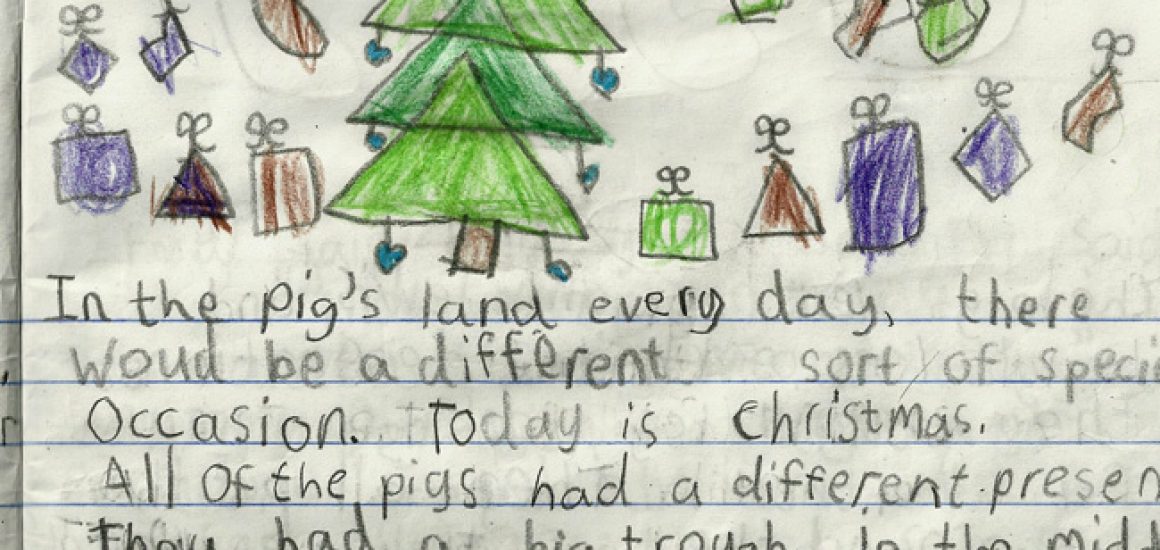 In the pig's land every day, there
woud be a different sort of speci
Occasion. Today is Christmas.
All of the pigs had a different presen
They had a big trough in the midd